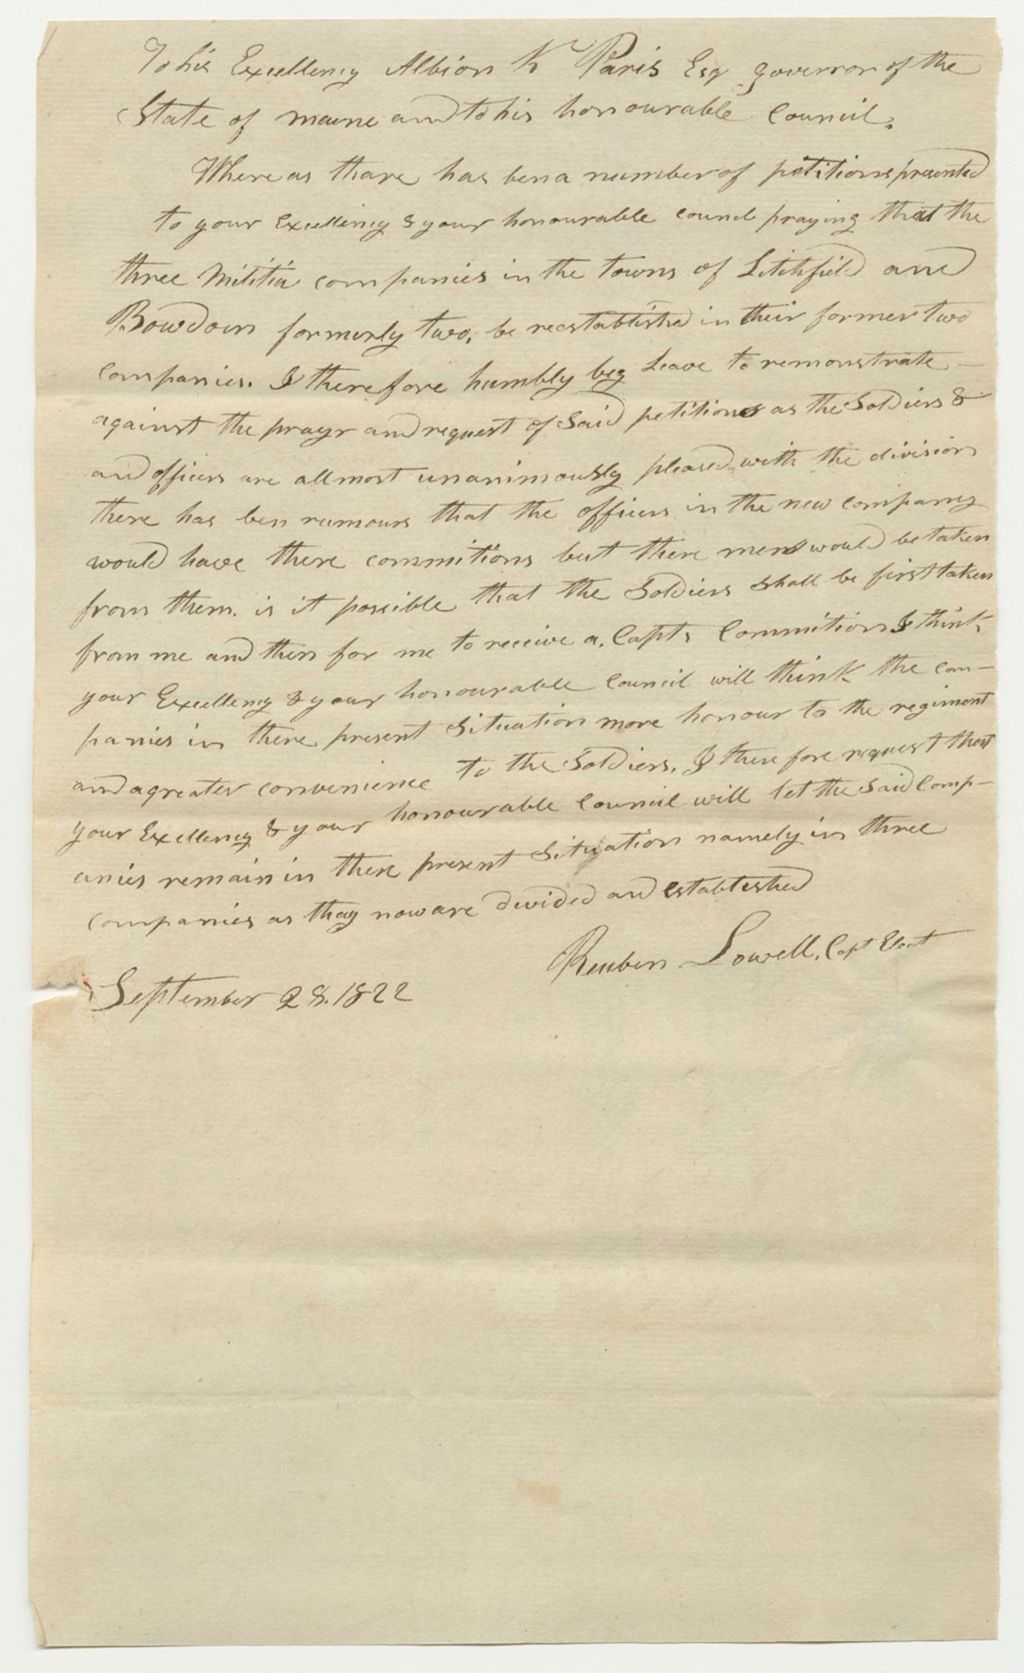 To his Excellency Albion K Paris Esq governor of the
State of maine and to his honourable Council.
Where as thare has ben a number of petitions presented
to your Excellency & your honourable council praying that the
three Militia companies in the towns of Litchfield and
Bowdoin formerly two, be reestablished in their former two
Companies. I therefore humbly beg Leave to remonstrate
against the prayr and request of Said petitions as the Soldiers &
and officers are allmost unanimously pleased with the division
there has ben rumours that the officers in the new company
would have there commitions but there men would be taken
from them. is it possible that the Soldiers shall be first taken
from me and then for me to receive a. Capts Commition I think
your Excellency & your honourable Council will think the com-
panies in there present Situation more honour to the regiment
and a greater convenience to the Soldiers. I there fore request that
your Excellency & your honourable Council will let the Said Comp-
anies remain in there present Situation namely in three
companies as thay now are divided and established
Reuben Lowell, Capt Elect
September 28. 1822